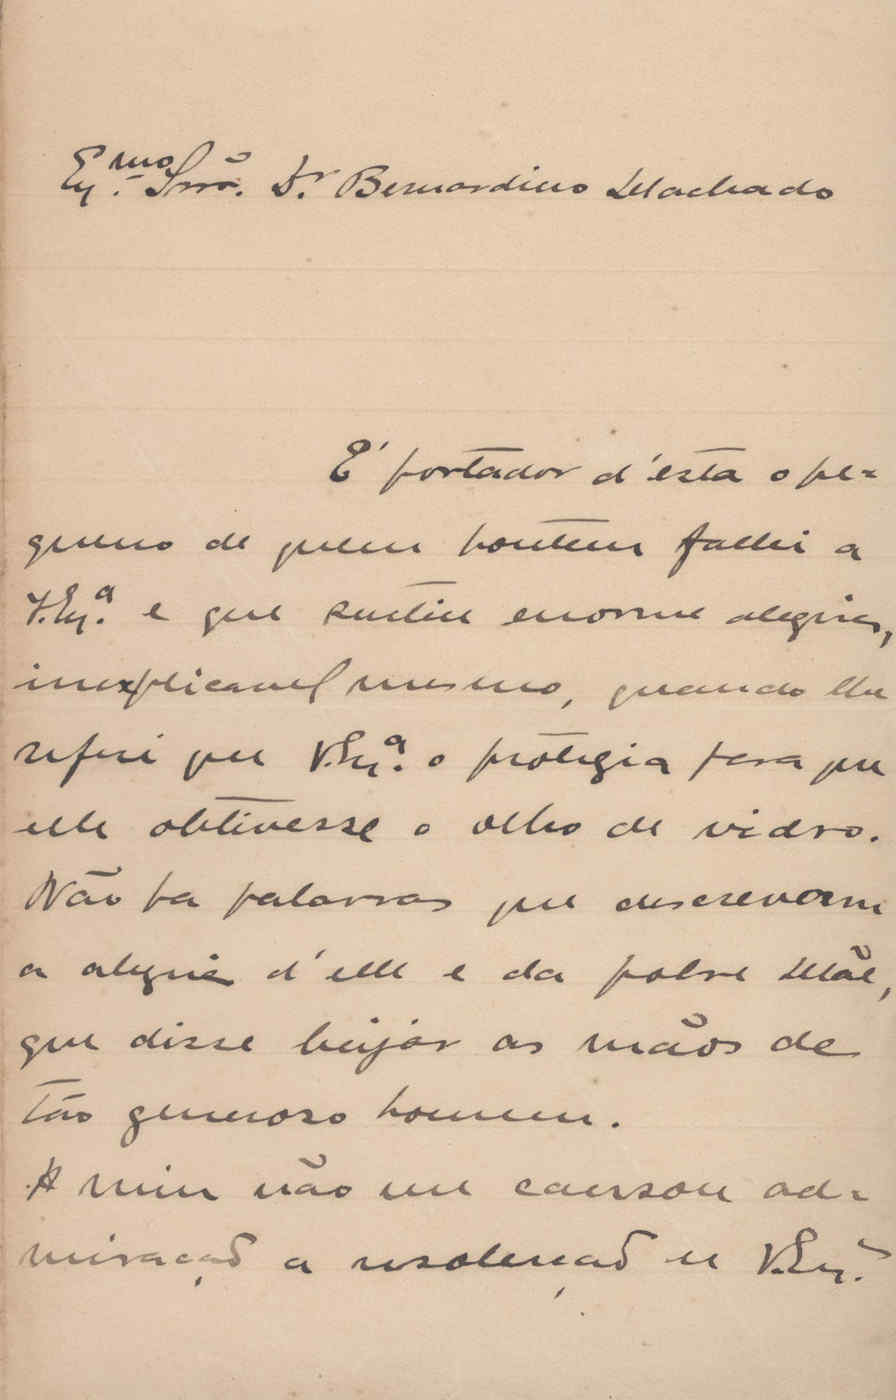 Exmo. Snrõ. Dr. Bernardino Machado
É portador d'esta o pe=
queno de quem hontem fallei a
V.Exa. e que sentiu enorme alegria,
inexplicavel mesmo, quando lhe
referi que V.Exa. o protegia para que
elle obtivesse o olho de vidro.
Não ha palavras que descrevam
a alegria d'elle e da pobre Mãe,
que disse beijar as mãos de
tão generoso homem.
A mim não me causou ad=
miração a resolução
V.Exa.